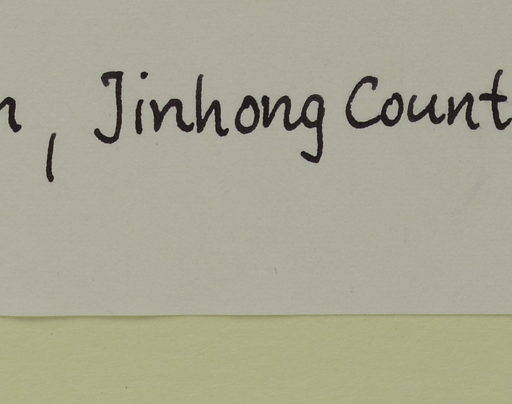 n, Jinhong Count